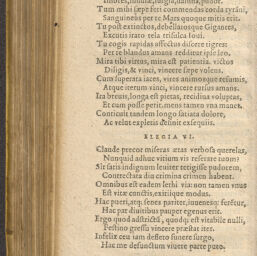 Tu mihi sæpè feri commendas corda tyranni,
Sanguineus per te Mars quoque mitis erit.
Tu post extinctos, debellatosque Gigantes,
Excutis irato tela trisulca Ioui.
Tu cogis rapidas affectus discere tigres
Per te blandus amans redditur ipse leo.
Mira tibi virtus, mira est patientia. victos
Diligis, & vinci, vincere sæpe voleus.
Cum superata iaces, vires animosque resumis,
Atque iterum vinci, vincere rursus amans.
Ira breuis, longa est pietas, recidiua voluptas,
Et cum posse perit, mens tamen vna manet.
Continuit tandem longo satiata dolore,
Ac velut expletis definit exsequiis.
ELEGIA VI.
Claude precor miseras ætas verbosa querelas,
Nunquid adhuc vitium vis reserare tuum?
Sit satis indignum leuiter tetigisse pudorem,
Contrectata diu crimina crimen habent.
Omnibus est eadem lethi via: non tamen vnus
Est vitæ cunctis, exitiique modus.
Hac pueri, atq; senes pariter, iuuenesq; ferétur,
Hac par diuitibus pauper egenus erit.
Ergo quod adstrictū, quodq; est vitabile nulli,
Festino gressu vincere præstat iter.
Infelix ceu iam defleto funere surgo,
Hac me defunctum viuere parte puto.